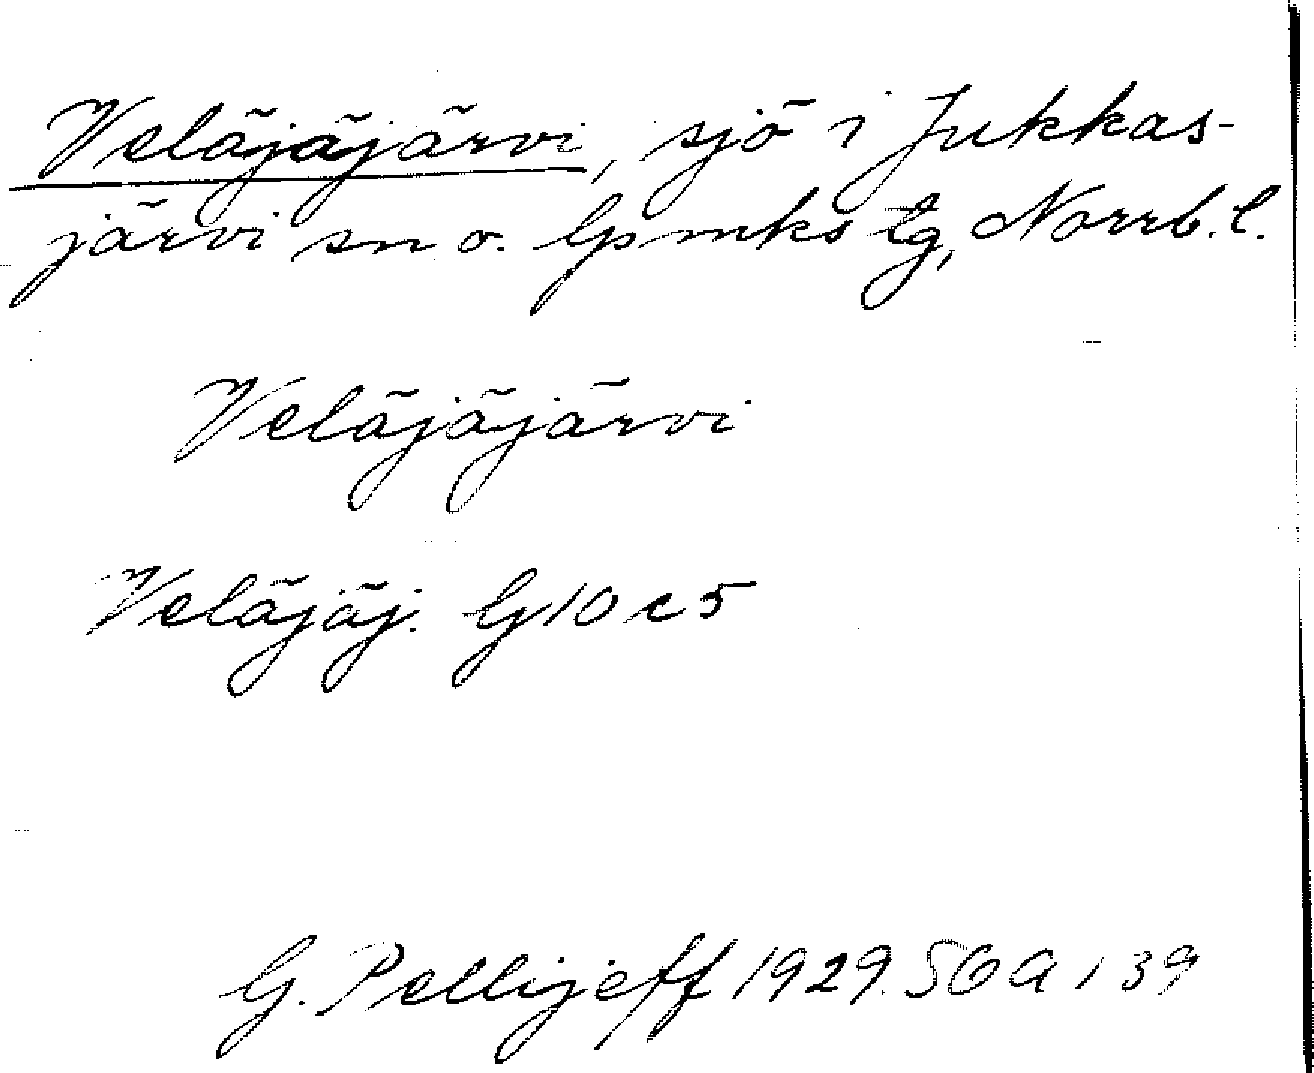 Veläjäjärvi, sjö i Jukkas-
järvi sn o. lpmks tg, Norrb. l.
Veläjäjärvi
Veläjäj. G 10 c 5
G. Pellijeff 1929. SOA 139